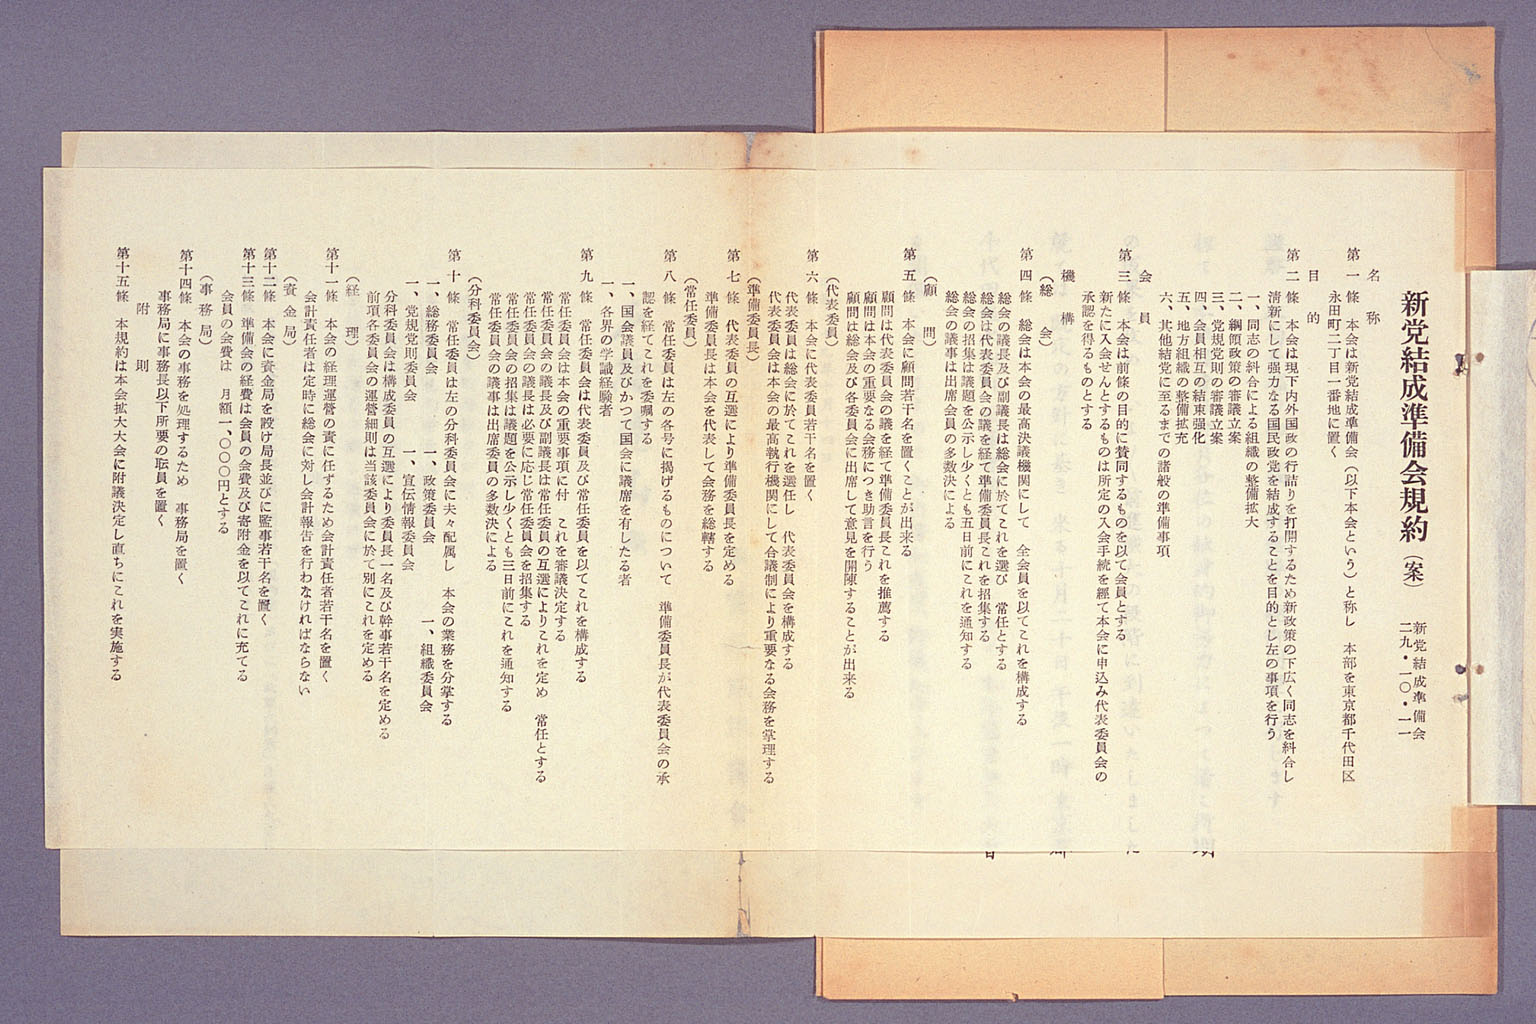 新党結成準備会規約（案）
新党結成準備会
二九・一〇・一一
名称
第一條　本会は新党結成準備会（以下本会という）と称し　本部を東京都千代田区
永田町二丁目一番地に置く
目的
第二條　本会は現下内外国政の行詰りを打開するため新政策の下広く同志を糾合し
清新にして強力なる国民政党を結成することを目的とし左の事項を行う
一、同志の糾合による組織の整備拡大
二、綱領政策の審議立案
三、党規党則の審議立案
四、会員相互の結束強化
五、地方組織の整備拡充
六、其他結党に至るまでの諸般の準備事項
会員
第三條　本会は前條の目的に賛同するものを以て会員とする
新たに入会せんとするものは所定の入会手続を經て本会に申込み代表委員会の
承認を得るものとする
機構
（総会）
第四條　総会は本会の最高決議機関にして　全会員を以てこれを構成する
総会の議長及び副議長は総会に於てこれを選び　常任とする
総会は代表委員会の議を経て準備委員長これを招集する
総会の招集は議題を公示し少くとも五日前にこれを通知する
総会の議事は出席会員の多数決による
（顧問）
第五條　本会に顧問若干名を置くことが出来る
顧問は代表委員会の議を経て準備委員長これを推薦する
顧問は本会の重要なる会務につき助言を行う
顧問は総会及び各委員会に出席して意見を開陳することが出来る
（代表委員）
第六條　本会に代表委員若干名を置く
代表委員は総会に於てこれを選任し　代表委員会を構成する
代表委員会は本会の最高執行機関にして合議制により重要なる会務を掌理する
（準備委員長）
第七條　代表委員の互選により準備委員長を定める
準備委員長は本会を代表して会務を総轄する
（常任委員）
第八條　常任委員は左の各号に掲げるものについて　準備委員長が代表委員会の承
認を経てこれを委嘱する
一、国会議員及びかつて国会に議席を有したる者
一、各界の学識経験者
第九條　常任委員会は代表委員及び常任委員を以てこれを構成する
常任委員会は本会の重要事項に付　これを審議決定する
常任委員会の議長及び副議長は常任委員の互選によりこれを定め　常任とする
常任委員会の議長は必要に応じ常任委員会を招集する
常任委員会の招集は議題を公示し少くとも三日前にこれを通知する
常任委員会の議事は出席委員の多数決による
（分科委員会）
第十條　常任委員は左の分科委員会に夫々配属し　本会の業務を分掌する
一、総務委員会　一、政策委員会　一、組織委員会
一、党規党則委員会　一、宣伝情報委員会
分科委員会は構成委員の互選により委員長一名及び幹事若干名を定める
前項各委員会の運營細則は当該委員会に於て別にこれを定める
（経理）
第十一條　本会の経理運營の責に任ずるため会計責任者若干名を置く
会計責任者は定時に総会に対し会計報告を行わなければならない
（資金局）
第十二條　本会に資金局を設け局長並びに監事若干名を置く
第十三條　準備会の経費は会員の会費及び寄附金を以てこれに充てる
会員の会費は　月額一、〇〇〇円とする
（事務局）
第十四條　本会の事務を処理するため　事務局を置く
事務局に事務長以下所要の職員を置く
附則
第十五條　本規約は本会拡大大会に附議決定し直ちにこれを実施する